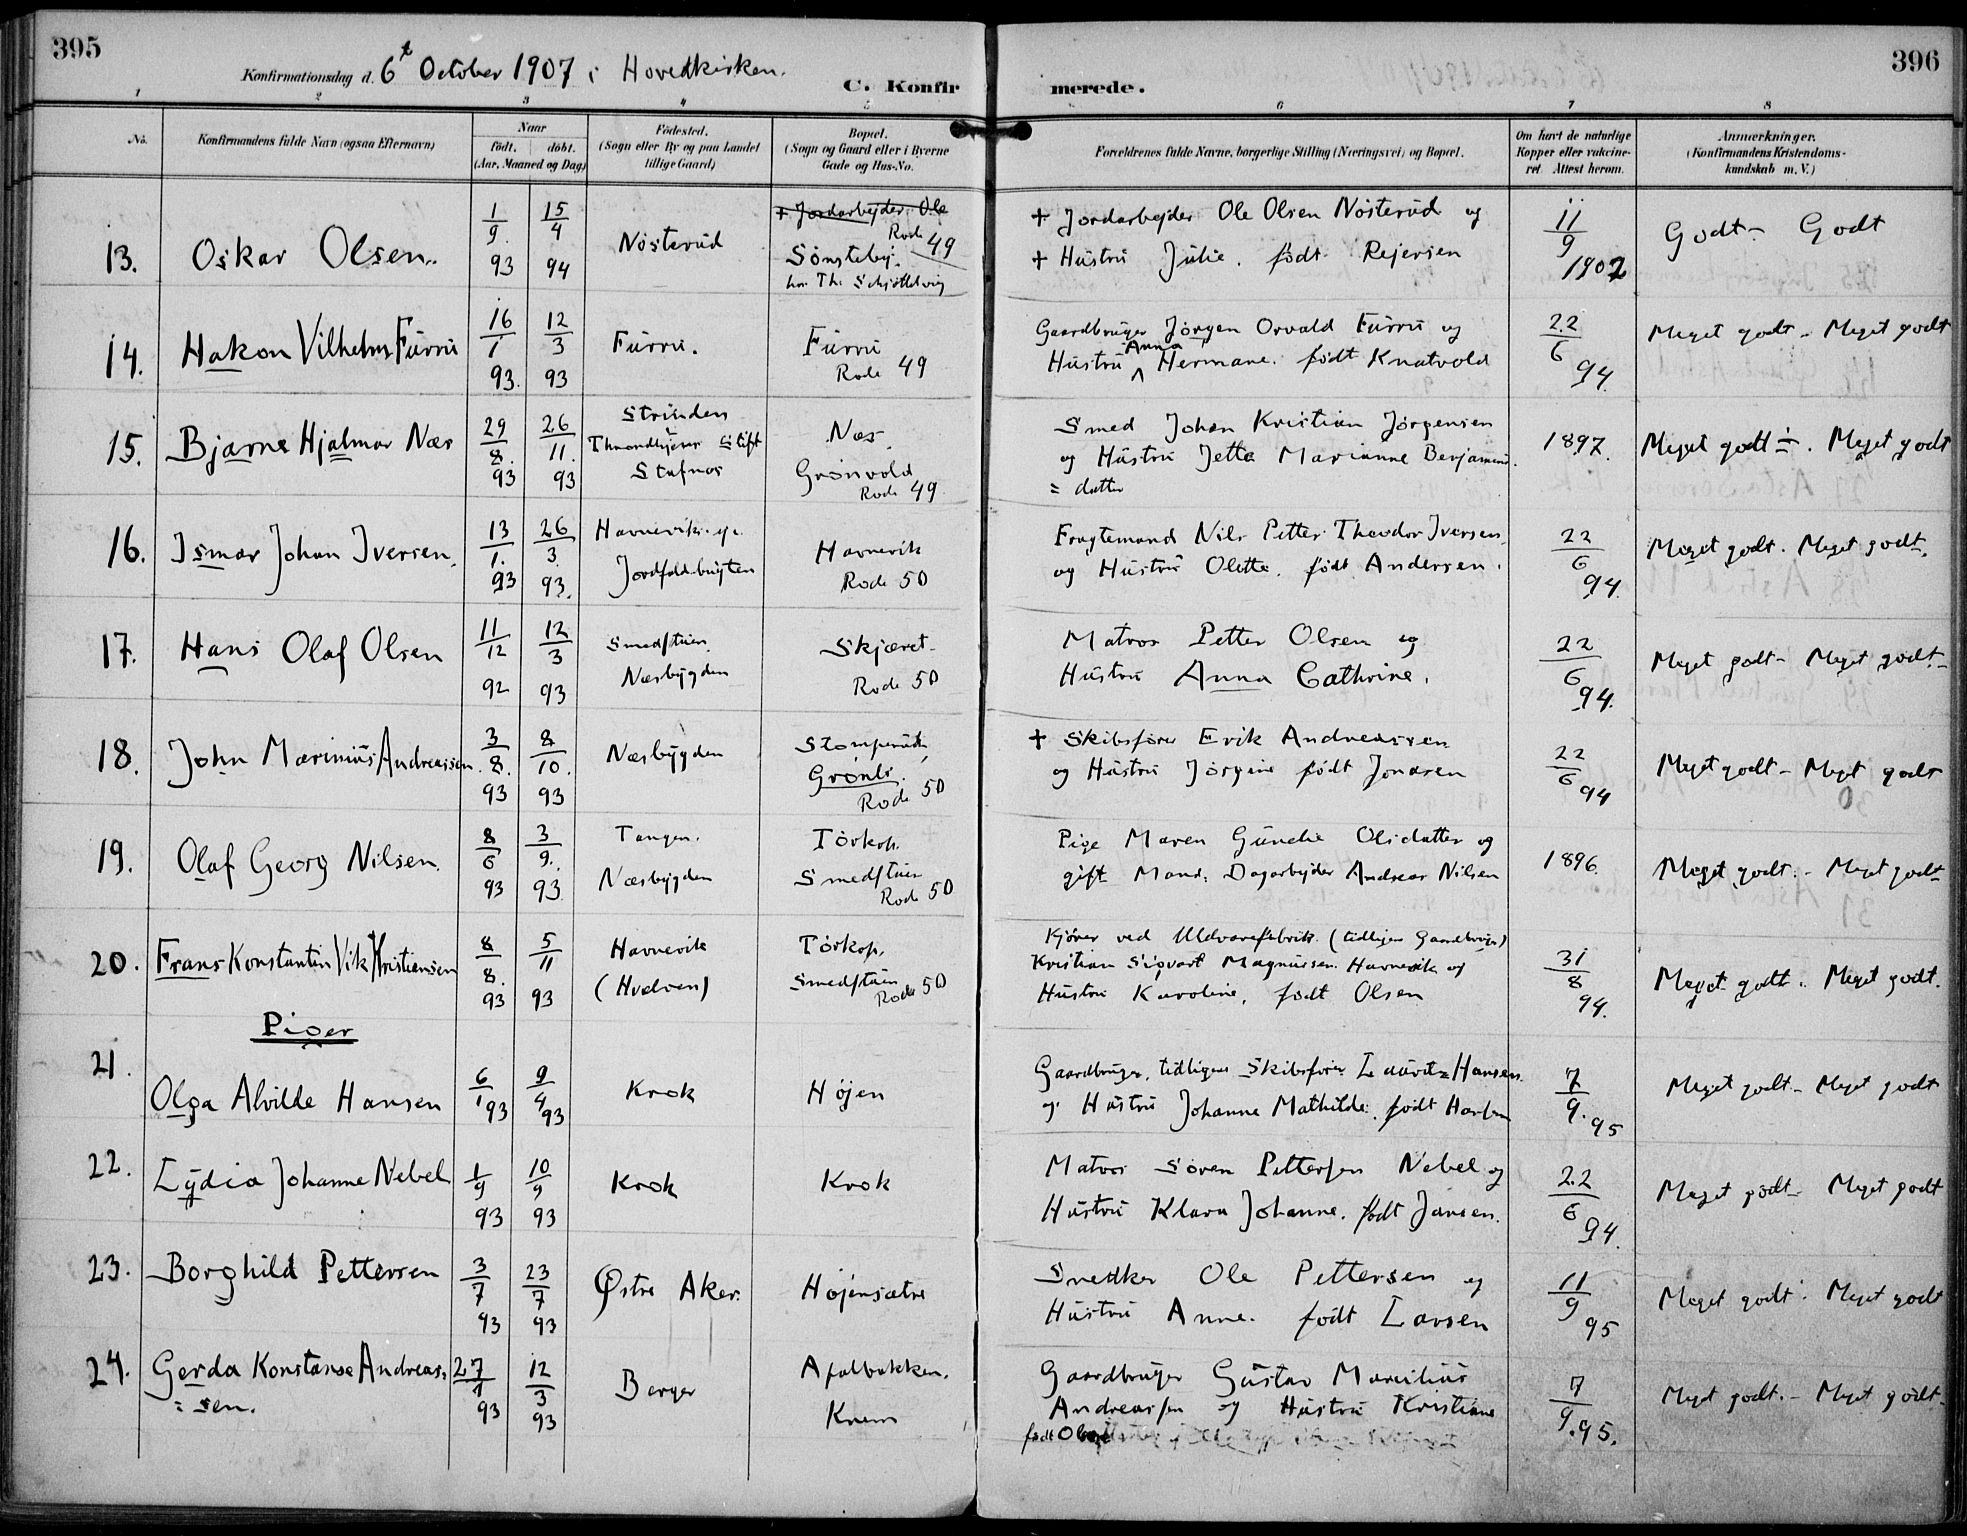 395
396
Konfirmationsdag d. 6t October 1907 i Hovedkirken.
C. Konfir merede.
1 2 3 4 5 6 7 8
No.
Konfirmandens fulde Navn (ogsaa Efternavn)
Naar
født. døbt.
(Aar, Maaned og Dag)
Fødested.
(Sogn eller By og paa Landet
tillige Gaard)
Bopæl.
(Sogn og Gaard eller i Byerne
Gade og Hus-No.
Forældrenes fulde Navne, borgerlige Stilling (Næringsvei) og Bopæl.
Om havt de naturlige
Kopper eller vakcine-
ret Attest herom.
Anmærkninger.
(Konfirmandens Kristendoms-
kundskab m. V.)
13. Oskar Olsen.
1/9 93
15/4 94
Nösterud
+ Jordarbejder Ole
Rode 49
Sönsteby.
hos Th.
+ Jordarbejder Ole Olsen Nösterud og
+ Hustru Julie. født Rejersen
11/9 1902
Godt - Godt
14. Hakon Vilhelm Furru
16/1 93.
12/3 93
Furru.
Furru
Rode 49
Gaardbruger Jörgen Orvald Furru og
Hustru Anna Hermane. født Knatvold
22/6 94.
Meget godt - Meget godt
15. Bjarne Hjalmar Næs
29/8. 93
26/11. 93
Strinden
Throndhjems Stift
Stafnes
Næs.
Grönvold
Rode 49
Smed Johan Kristian Jörgensen
og Hustru Jette Marianne Benjamins
= datter
1897.
Meget godt ÷. Meget godt
16. Ismar Johan Iversen.
13/1. 93
26/3. 93.
Havnevik. ej.
Jordfaldbugten
Havnevik
Rode 50
Fragtemand Nils Petter Theodor Iversen
og Hustru Olette. født Andersen.
22/6 94.
Meget godt. Meget godt.
17. Hans Olaf Olsen
11/12 92
12/3 93
Smedstuen.
Næsbygden
Skjæret
Rode 50
Matros Petter Olsen og
Hustru Anna Cathrine.
22/6 94.
Meget godt - Meget godt -
18. John Marinius Andreassen.
3/8. 93
8/10. 93
Næsbygden
Stomperud
Grönli.
Rode 50
+ Skibsfører Erik Andreassen
og Hustru Jörgine født Jonasen
22/6 94
Meget godt - Meget godt
19. Olaf Georg Nilsen.
8/6 93
3/9. 93
Tangen.
Næsbygden
Törkop.
Smedstuen
Rode 50
Pige Maren Gunelie Olsdatter og
gift Mand: Dagarbejder Andreas Nilsen
1896.
Meget godt. - Meget godt
20. Frans Konstantin Vik Kristiansen
8/8. 93
5/11 93
Havnevik
(Hvalven)
Törkop.
Smedstuen
Rode 50
Kjörer ved Uldvarefabrik. (tidligere Gaardbruger)
Kristian Sigvart Magnussen Havnevik og
Hustru Karoline, født Olsen
31/8 94.
Meget godt. Meget godt.
Piger
21. Olga Alvilde Hansen
6/1 93
9/4 93
Krok
Højen
Gaardbruger, tidligere Skibsfører Lauritz Hansen
og Hustru Johanne Mathilde. født
7/9. 95
Meget godt - Meget godt
22. Lydia Johanne Nebel
1/9 93
10/9 93
Krok
Krok
Matros Sören Pettersen Nebel og
Hustru Klara Johanne. født Jansen.
22/6 94.
Meget godt - Meget godt
23. Borghild Pettersen
3/7 93
23/7 93
Østre Aker.
Højensætre
Snedker Ole Pettersen og
Hustru Anne. født Larsen
11/9 95
Meget godt. Meget godt
24. Gerda Konstanse Andreas=
=sen.
27/1 93
12/3 93
Berger
Apalbakken.
Knem
Gaardbruger Gustav Marilius
Andreassen og Hustru Kristiane
født
7/9.95.
Meget godt. - Meget godt.